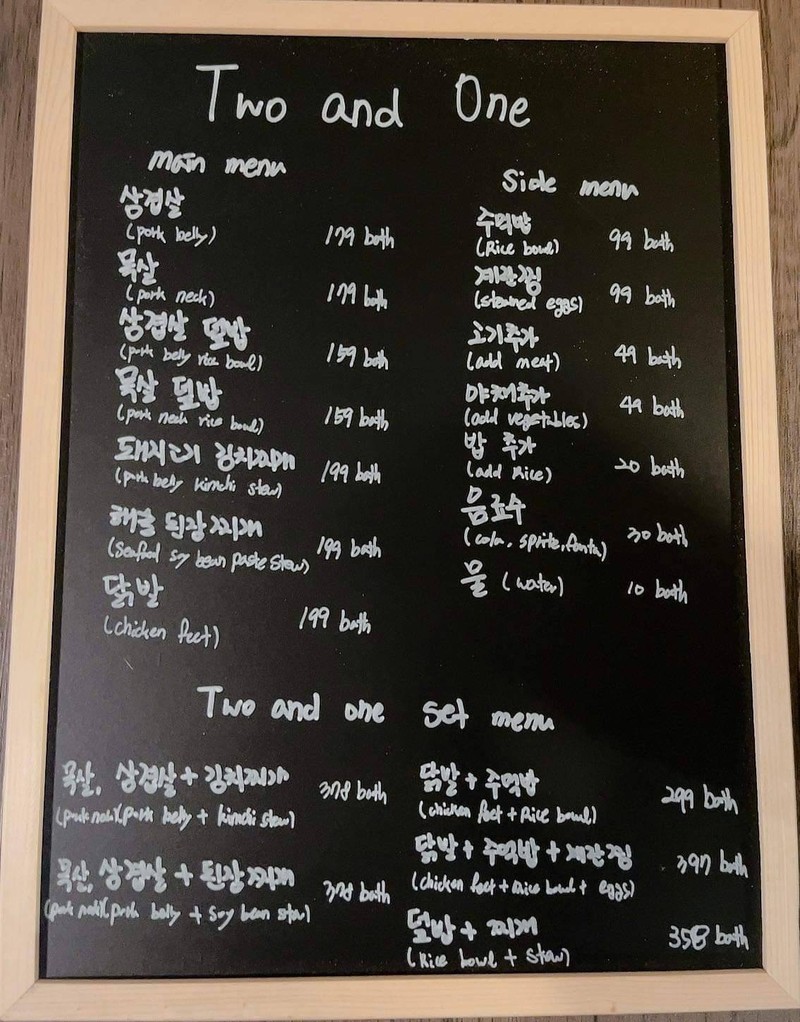 Two and One
main menu
삼겹살
(pork belly) 179 bath
목살
(pork neck) 179 bath
삼겹살 덮밥
(pork belly rice bowl) 159 bath
목살 덮밥
(pork neck rice bowl) 159 bath
돼지고기 김치찌개
(pork belly kimchi stew) 199 bath
해물 된장찌개
(Seafood soy bean paste stew) 199 bath
닭발
(chicken feet) 199 bath
Side menu
주먹밥
(Rice bowl) 99 bath
계란찜
(steamed eggs) 99 bath
고기추가
(add meat) 49 bath
야채추가
(add vegetables) 49 bath
밥 추가
(add Rice) 20 bath
음료수
(cola, sprite, fanta) 30 bath
물 (water) 10 bath
Two and one set menu
목살, 삼겹살 + 김치찌개 378 bath
(pork neck)(pork belly + kimchi stew)
목살, 삼겹살 + 된장찌개 378 bath
(pork neck)(pork belly + Soy bean stew)
닭발 + 주먹밥 299 bath
(chicken feet + Rice bowl)
닭발 + 주먹밥 + 계란찜 397 bath
(chicken feet + Rice bowl + eggs)
덮밥 + 찌개 358 bath
(Rice bowl + stew)